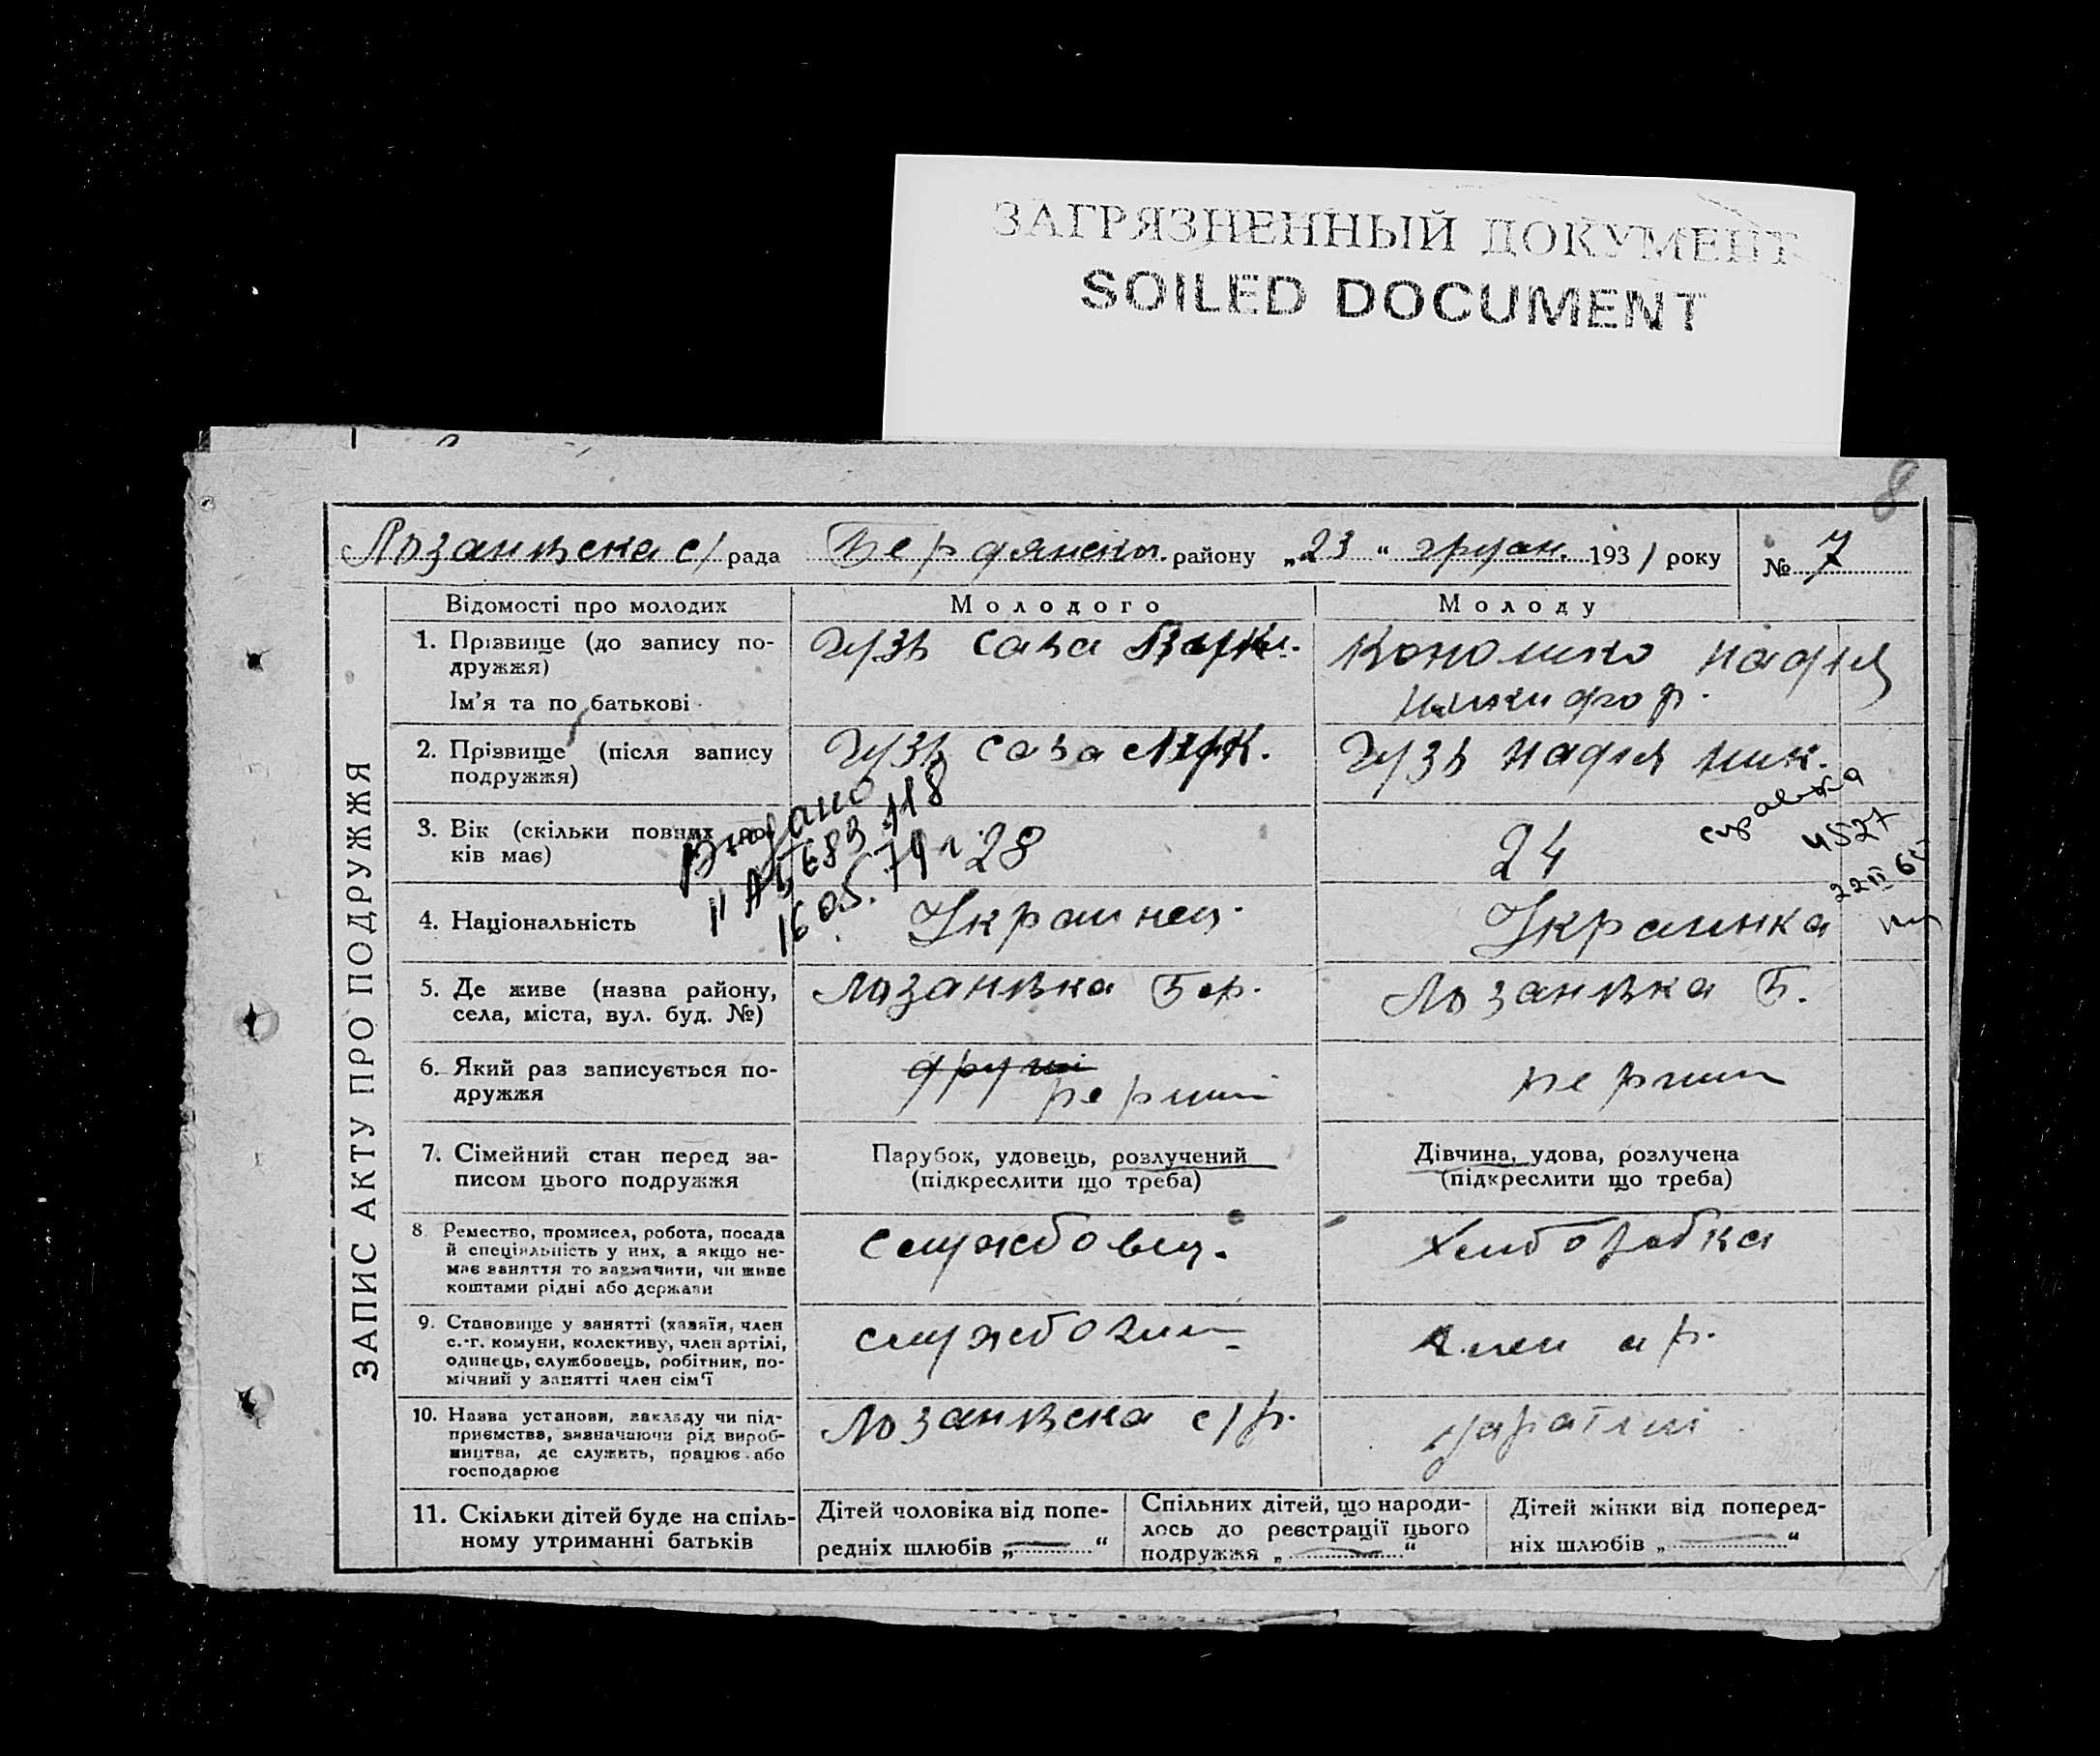 ЗАГРЯЗНЕННЫЙ ДОКУМЕНТ
SOILED DOCUMENT
8
Лозанівска с/ рада Бердянськ. району „23 “ грудн. 1931 року № 7
ЗАПИС АКТУ ПРО ПОДРУЖЖЯ
Відомості про молодих
Молодого
Молоду
1. Прізвище (до запису по-
дружжя)
Ім’я та по батькові
Гузь Сава
Кономко Надія
Никифор.
2. Прізвище (після запису
подружжя)
Гузь Сава
Гузь Надія Ник.
3. Вік (скільки повних ро-
ків має)
28
24
Видано
16 05. 79 г
справка
4527
4. Національність
Украинец.
Украинка
5. Де живе (назва району,
села, міста, вул. буд. №)
Лозанівка Бер.
Лозанівка Б.
6. Який раз записується по-
дружжя
другий
перший
перший
7. Сімейний стан перед за-
писом цього подружжя
Парубок, удовець, розлучений
(підкреслити що треба)
Дівчина, удова, розлучена
(підкреслити що треба)
8 Ремество, промисел, робота, посада
й спеціяльність у них, а якщо не-
має заняття то зазначити, чи живе
коштами рідні або держави
службовец.
хлиборобка
9. Становище у занятті (хазяїн, член
с.-г. комуни, колективу, член артілі,
одинець, службовець, робітник, по-
мічний у занятті член сім’ї
член ар.
10. Назва установи, закладу чи під-
приємства, зазначаючи рід вироб-
ництва, де служить, працює або
господарює
Лозанівска с/р.
у артілі
11. Скільки дітей буде на спіль-
ному утриманні батьків
Дітей чоловіка від попе-
редніх шлюбів „ — “
Спільних дітей, що народи-
лось до реєстрації цього
подружжя „ — “
Дітей жінки від поперед-
ніх шлюбів „ — “